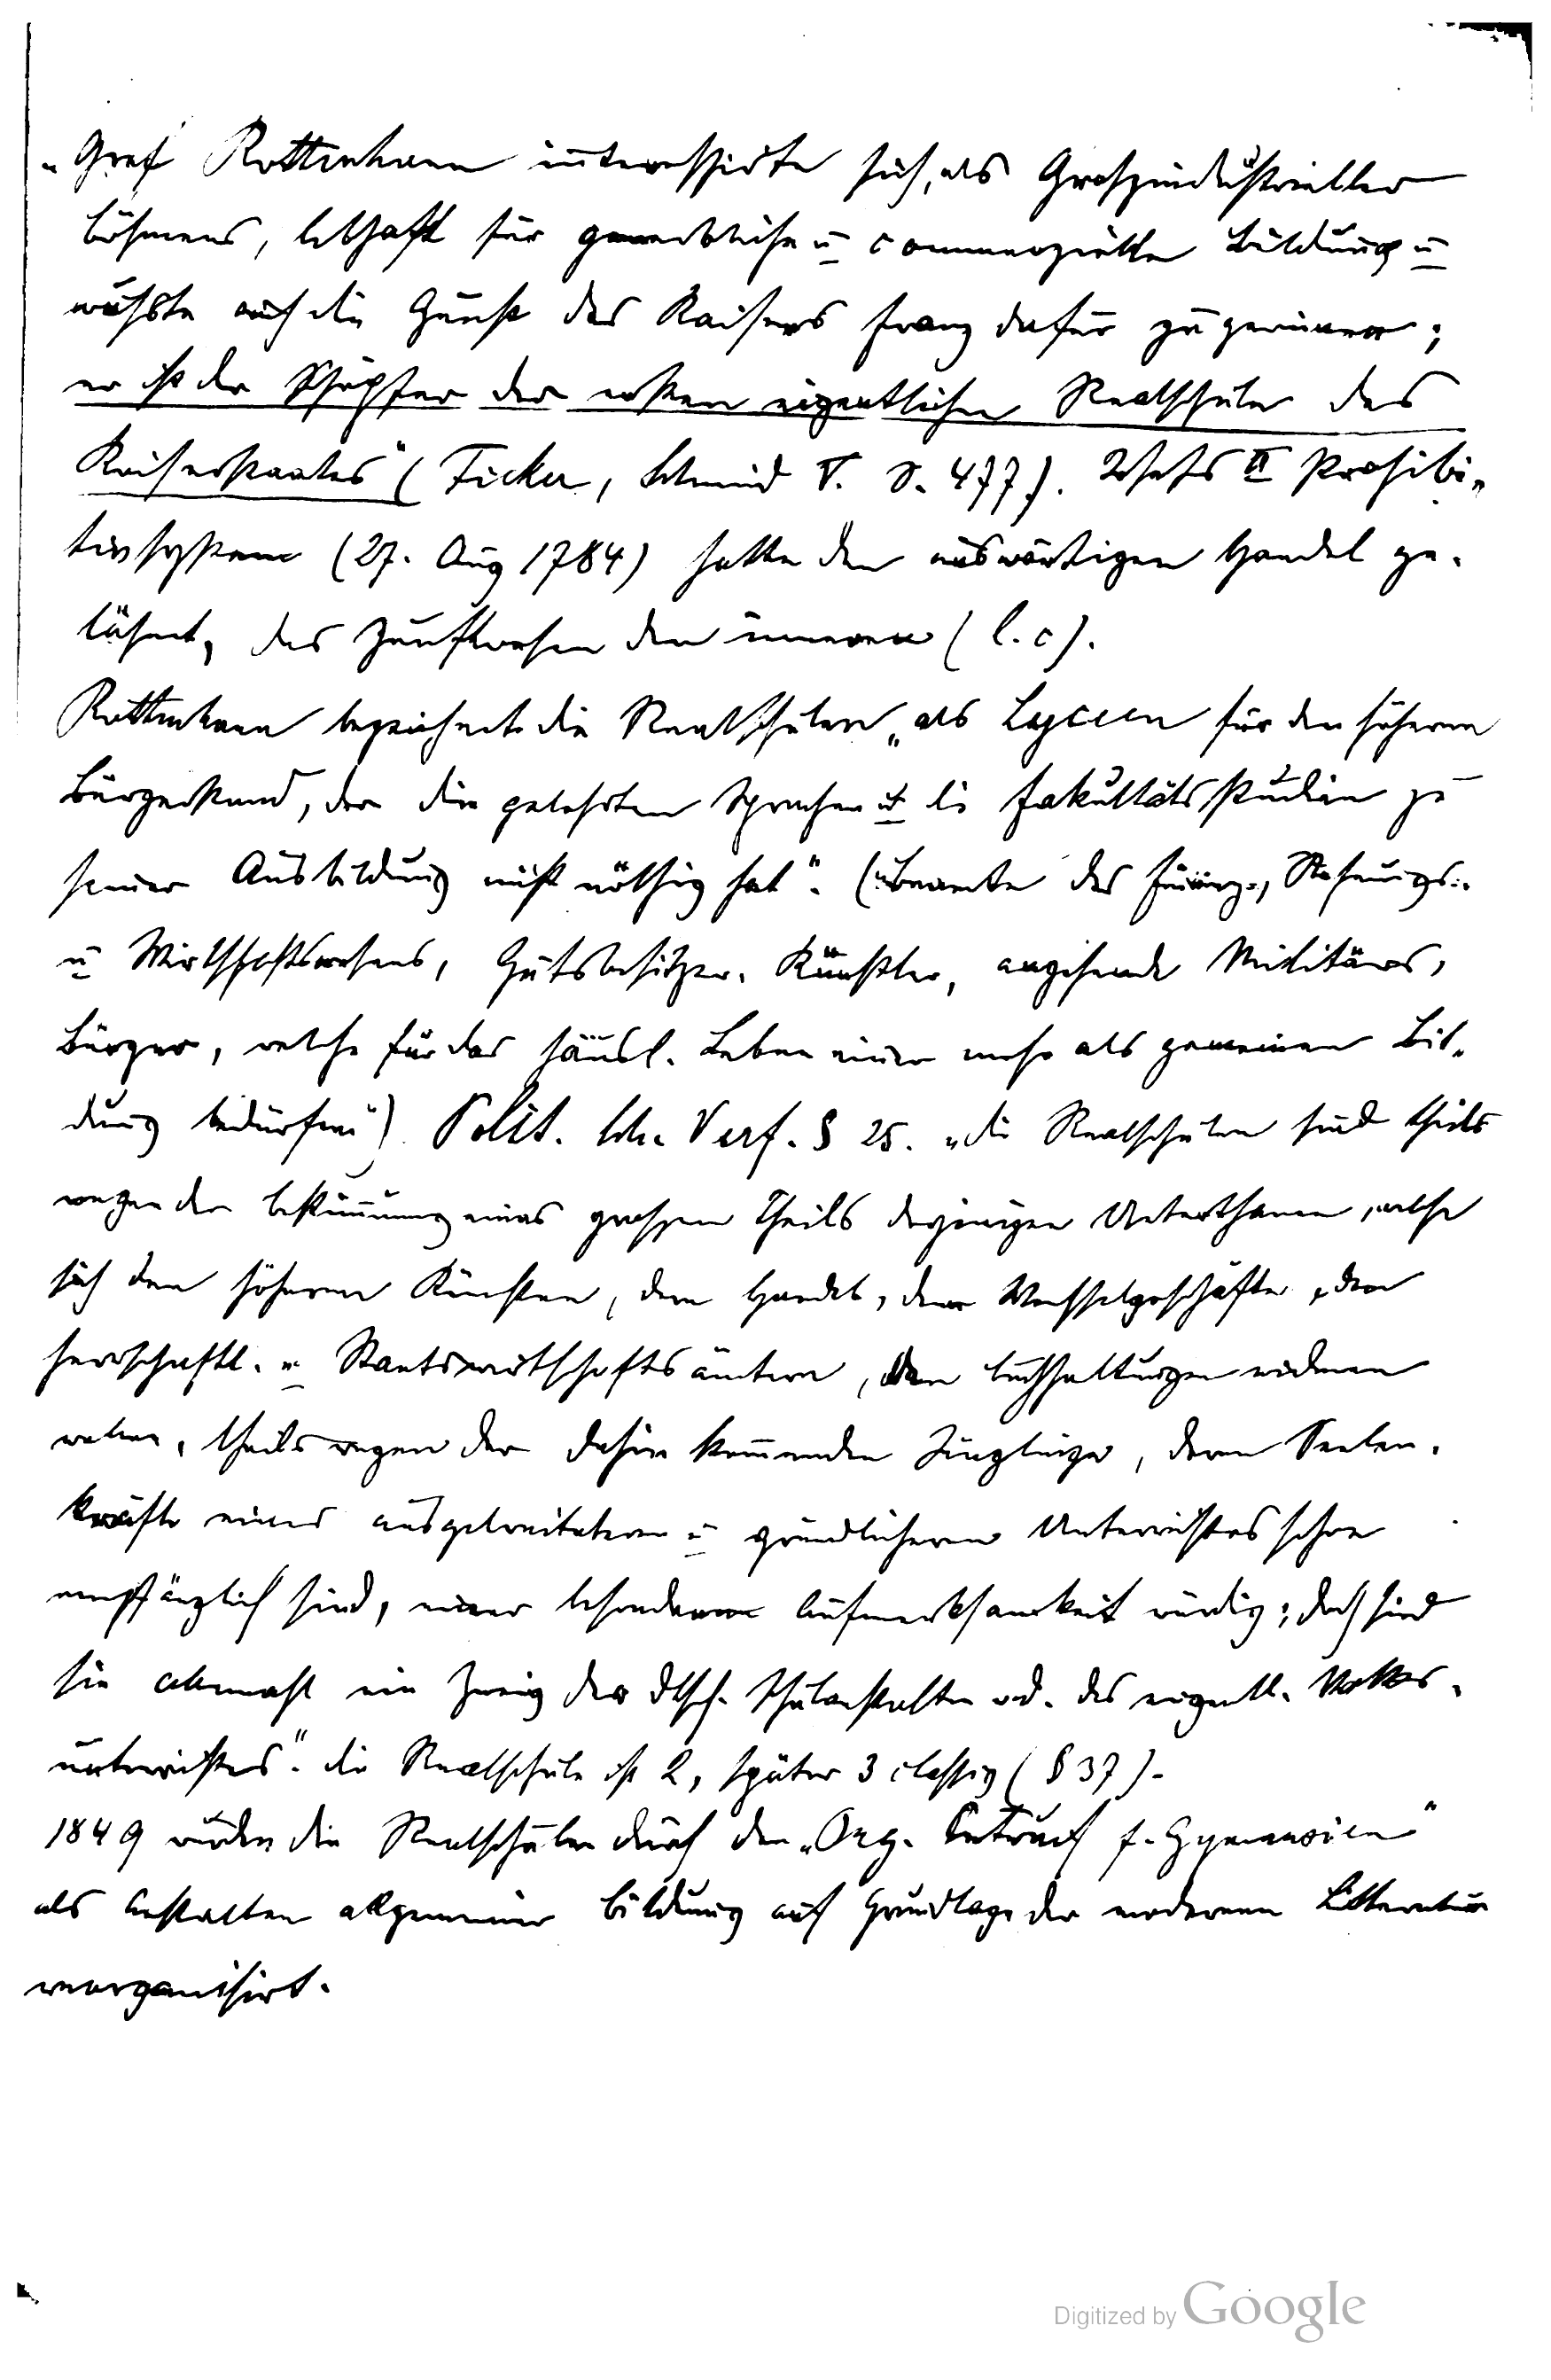 „Graf Rottenhann interessirte sich, als Groszindustrieller
Böhmens, lebhaft für gewerbliche u commerzielle Bildung u
wuszte auch die Gunst des Kaisers Franz dafür zu gewinnen;
er ist der Schöpfer der ersten eigentlichen Realschule des
Kaiserstaates" (Ficker, Schmid V. S. 477). Josefs II Prohibi-
tivsystem (27. Aug 1784) hatte den auswärtigen Handel ge-
lähmt, das Zunftwesen den inneren (l. c).
Rottenhann bezeichnet die Realschulen „als Lyceen für den höheren
Bürgerstand, der die gelehrten Sprachen u die Fakultätsstudien zu
seiner Ausbildung nicht nöthig hat". („Beamte des Finanz-, Rechnungs-
u Wirthschaftswesens, Gutsbesitzer, Künstler, angehende Militärs,
Bürger, welche für das häusl. Leben einer mehr als gemeinen Bil-
dung bedürfen") Polit. Sch. Verf. § 25. „die Realschulen sind theils
wegen der Bestimmung eines groszen Theils derjenigen Unterthanen, welche
sich den höheren Künsten, dem Handel, dem Wechselgeschäfte, den
herrschaftl. u Staatswirthschaftsämtern, den Buchhaltungen widmen
wollen, theils wegen der dahin kommenden Jünglinge, deren Seelen-
kräfte eines ausgebreiteteren u gründlicheren Unterrichtes schon
empfänglich sind, einer besonderen Aufmerksamkeit würdig; doch sind
sie ein Zweig der dtsch. Schulanstalten od. des eigentl. Volks-
unterrichtes". die Realschule ist 2, später 3 classig (§ 37).
1849 wurden die Realschulen durch den „Org. Entwurf f. Gymnasien"
als Anstalten allgemeiner Bildung auf Grundlage der modernen Litteratur
reorganisirt.
Digitized by Google